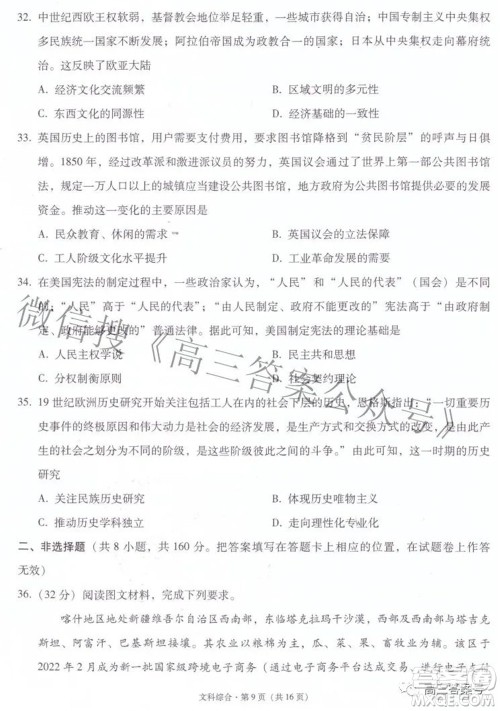 32. 中世纪西欧王权软弱，基督教会地位举足轻重，一些城市获得自治；中国专制主义中央集权
多民族统一国家不断发展；阿拉伯帝国成为政教合一的国家；日本从中央集权走向幕府统
治。这反映了欧亚大陆
A. 经济文化交流频繁 B. 区域文明的多元性
C. 东西文化的同源性 D. 经济基础的一致性
33. 英国历史上的图书馆，用户需要支付费用，要求图书馆降格到“贫民阶层”的呼声与日俱
增。1850 年，经过改革派和激进派议员的努力，英国议会通过了世界上第一部公共图书馆
法，规定一万人口以上的城镇应当建设公共图书馆，地方政府为公共图书馆的发展提供
资金。推动这一变化的主要原因是
A. 民众教育、休闲的需求 B. 英国议会的立法保障
C. 工人阶级文化水平提升 D. 工业革命发展的需要
34. 在美国宪法的制定过程中，一些政治家认为，“人民”与“人民的代表”（国会）是不同
的；“人民”高于“人民的代表”；“由人民制定、政府不能更改的”宪法高于“由政府制
定、政府能够更改的”普通法律。据此可知，美国制定宪法的理论基础是
A. 人民主权学说 B. 民主共和思想
C. 分权制衡原则 D. 社会契约理论
35. 19 世纪欧洲历史研究开始关注包括工人在内的社会下层的历史，恩格斯指出：“一切重要历
史事件的终极原因和伟大动力是社会的经济发展，是生产方式和交换方式的改变，是由此产
生的社会之划分为不同的阶级，是这些阶级彼此之间的斗争。”由此可知，这一时期的历史
研究
A. 关注民族历史研究 B. 体现历史唯物主义
C. 推动历史学科独立 D. 走向理性化专业化
二、非选择题（共 8 小题，共 160 分。把答案填写在答题卡上相应的位置，在试题卷上作答
无效）
36. (32 分) 阅读图文材料，完成下列要求。
喀什地区地处新疆维吾尔自治区西南部，东临塔克拉玛干沙漠，西部及西南部与塔吉克
斯坦、阿富汗、巴基斯坦接壤，该地区主要种植棉花、小麦、玉米、瓜、菜、果、畜牧业较发达。
2022 年 2 月成为新一批国家级跨境电子商务（通过电子商务平台达成交易、进行电子支付
文科综合·第 9 页（共 16 页）
微信搜《高三答案公众号》
高三答案号